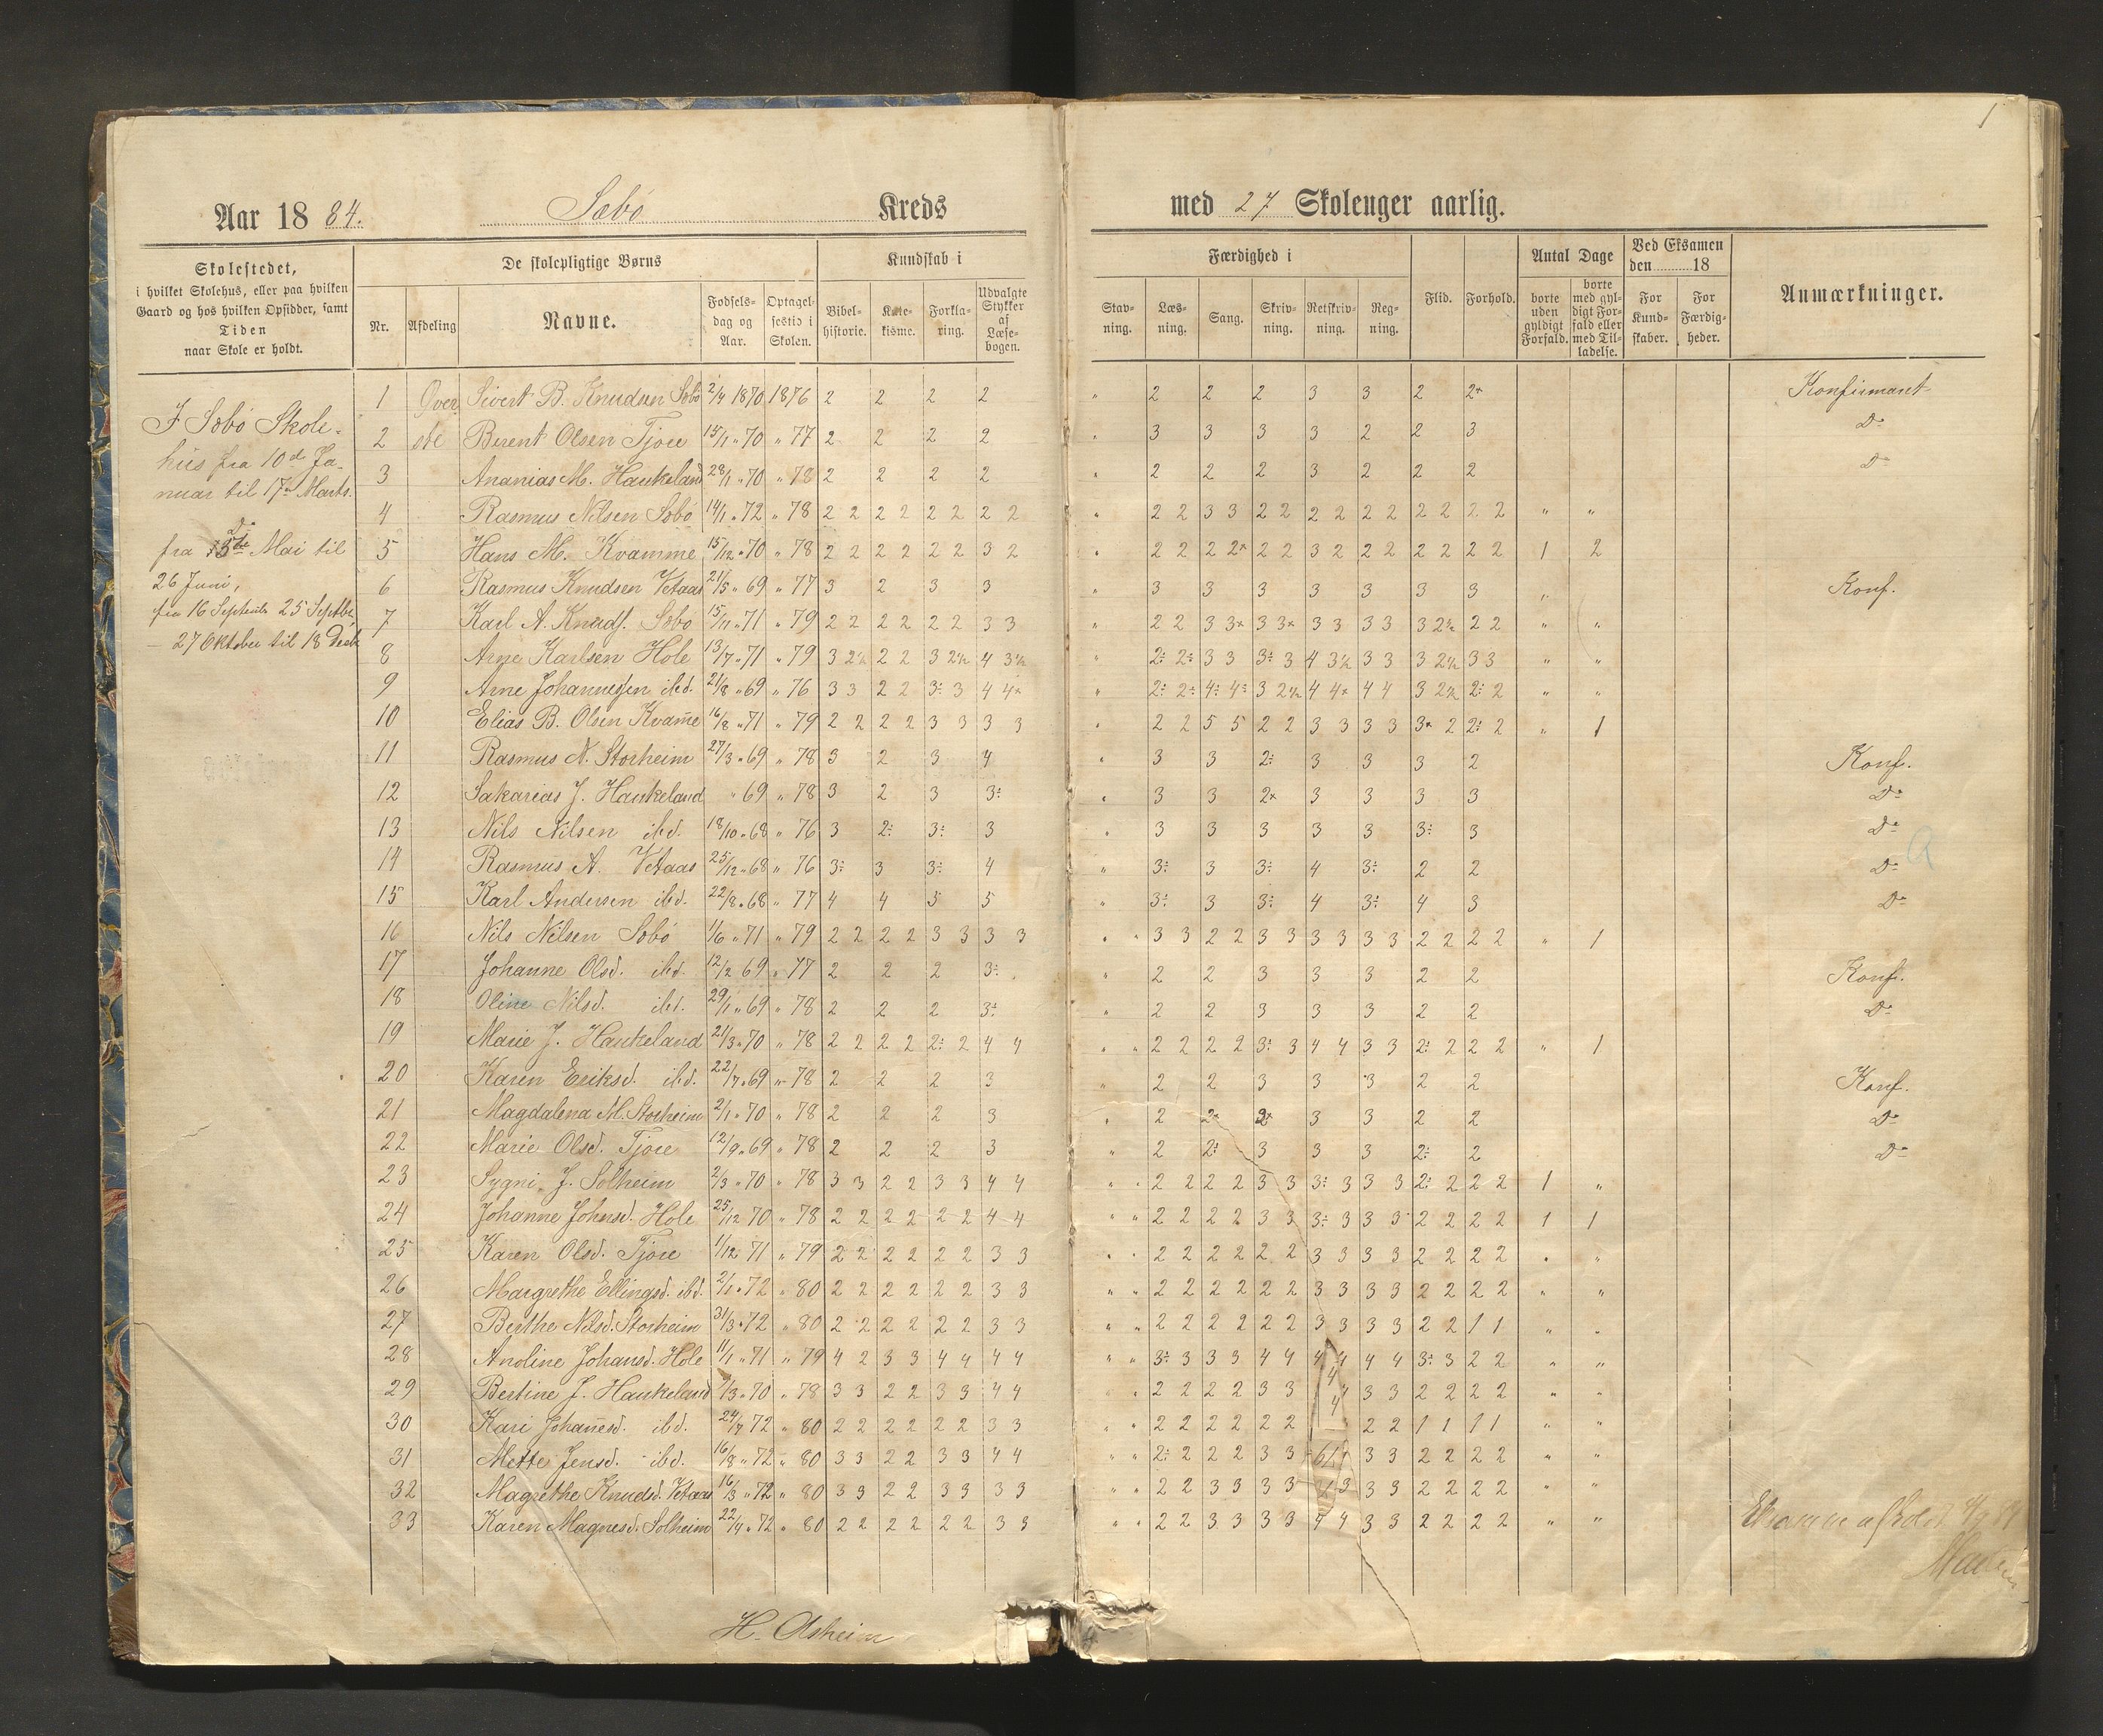 1
Aar 1884. Sæbö Kreds med 27 Skolenger aarlig.
Skolestedet,
i hvilket Skolehus, eller paa hvilken
Gaard og hos hvilken Opsidder, samt
Tiden
naar Skole er holdt.
De skolepligtige Børns
Nr. Afdeling Navne. Fødselsdag og Aar. Optagelsestid i Skolen.
Kundskab i
Bibelhistorie. Katekisme. Forklaring. Udvalgte Stykker af Læsebogen.
Færdighed i
Stavning. Læsning. Sang. Skrivning. Retskrivning. Regning.
Flid. Forhold.
Antal Dage
borte uden gyldigt Forfald. borte med gyldigt Forfald eller med Tilladelse.
Ved Eksamen
den 18
For Kundskaber. For Færdigheder.
Anmærkninger.
I Sæbö Skole-
hus fra 10d Ja-
nuar til 17de Marts.
Do
fra Mai til
26 Juni,
fra 16 Septemb 25 Septbr,
27 Oktober til 18 Decb
1 Øver Sivert B. Knudsen Sæbö 2/4 1870 1876 2 2 2 2 " 2 2 2 3 3 2 2* Konfirmant
2 ste Berent Olsen Tjore 15/1 " 70 " 77 2 2 2 2 " 3 3 3 3 2 2 3 Do
3 Ananias M. Haukeland 28/1 " 70 " 78 2 2 2 2 " 2 2 2 3 2 2 2 Do
4 Rasmus Nilsen Sæbö 14/1 " 72 " 78 2 2 2 2 2 2 2 2 " 2 2 3 3 2 2 2 2 2 2 2 2 2 2 " "
5 Hans M. Kvamme 15/12 " 70 " 78 2 2 2 2 2 2 3 2 " 2 2 2 2* 2 2 3 2 2 2 2 2 2 2 1 2
6 Rasmus Knudsen Vetaas 21/5 " 69 " 77 3 2 3 3 " 3 3 3 3 3 3 3 " Konf.
7 Karl A. Knuds. Sæbö 15/11 " 71 " 79 2 2 2 2 2 2 3 3 " 2 2 3 3* 3 3* 3 3 3 3 3 2½ 2 2 " "
8 Arne Karlsen Hole 13/7 " 71 " 79 3 2½ 2 2 3 2½ 4 3½ " 2÷ 2÷ 3 3 3÷ 3 4 3½ 3 3 3 2½ 3 3 " "
9 Arne Johannessen ibd. 21/8 " 69 " 76 3 3 2 2 3÷ 3 4 4* " 2÷ 2÷ 4÷ 4÷ 3 2½ 4 4* 4 4 3 2½ 2÷ 2 " "
10 Elias B. Olsen Kvam̄e 16/8 " 71 " 79 2 2 2 2 3 3 3 3 " 2 2 5 5 2 2 3 3 3 3 3* 2 2÷ 2 " 1
11 Rasmus N. Storheim 27/3 " 69 " 78 3 2 3 4 " 3 3 2÷ 3 3 3 2 Konf.
12 Sakarias J. Haukeland " 69 " 78 3 2 3 3÷ " 3 3 2* 3 3 3 3 Do
13 Nils Nilsen ibd. 18/10 " 68 " 76 3 2÷ 3÷ 3 " 3 3 3 3 3 3÷ 3 Do
14 Rasmus A. Vetaas 25/12 " 68 " 76 3÷ 3 3÷ 4 " 3÷ 3 3÷ 4 3÷ 2 2 Do
15 Karl Andersen ibd. 22/8 " 68 " 77 4 4 5 5 " 3÷ 3 3÷ 4 3÷ 4 3 Do
16 Nils Nilsen Sæbö 1/6 " 71 " 79 2 2 2 2 3 3 3 3 " " 3 3 2 2 3 3 3 3 3 3 2 2 2 2 " 1
17 Johanne Olsd. ibd. 12/2 69 " 77 2 2 2 3÷ " 2 2 3 3 3 2 2 Konf.
18 Oline Nilsd. ibd. 29/1 " 69 " 78 2 2 2 3÷ " 2 2 3 3 3 2 2 Do
19 Marie J. Haukeland 21/3 " 70 " 78 2 2 2 2 2÷ 2 4 4 " " 2 2 2 2 3÷ 3 4 4 3 3 2÷ 2 2 2 " 1
20 Karen Eriksd. ibd. 22/7 " 69 " 78 2 2 2 3 " 2 2 3 3 3 2 2 Konf.
21 Magdalena M. Storheim 2/1 " 70 " 78 2 2 2 3 " 2 2* 2* 3 3 2 2 Do
22 Marie Olsd. Tjore 12/9 " 69 " 78 2 2 2 3 " 2 2÷ 3 3 3 2÷ 2 Do
23 Sygni J. Solheim 2/3 " 70 " 78 3 3 2 2 3 3 4 4 " " 2 2 2 2 3 3 3÷ 3 3 3 2÷ 2 2 2 1 "
24 Johanne Johnsd. Hole 25/12 70 " 78 2 2 2 2 2 2 4 4 " " 2 2 2 2 3 3 3÷ 3 3 3 2 2 2 2 1 1
25 Karen Olsd. Tjore 1/12 71 " 79 2 2 2 2 2 2 3 3 " " 2 2 2 2 2 2 3 3 3 3 2 2 2 2 " "
26 Margrethe Ellingsd. ibd. 2/1 " 72 " 80 2 2 2 2 2 2 3 3 " " 2 2 2 2 2 2 3 3 3 3 2 2 2 2 " "
27 Berthe Nilsd. Storheim 31/3 " 72 " 80 2 2 2 2 2 2 3 3 " " 2 2 2 2 2 2 3 3 3 3 2 2 1 1 " "
28 Anoline Johansd. Hole 11/1 " 71 " 79 4 2 3 3 4 4 4 4 " " 3÷ 3 3 3 4 4 4 4 4 4 3÷ 3 2 2 " "
29 Bertine J. Haukeland /3 " 70 " 78 3 3 2 2 3 3 4 4 " " 2 2 2 2 3 3 3 3 2 2 2 2 " "
30 Kari Johan̄esd. ibd. 24/7 72 " 80 2 2 2 2 2 2 3 3 " " 2 2 2 2 2 2 2 2 1 1 1 1 " "
31 Mette Jensd. ibd. 16/8 " 72 " 80 3 3 2 2 3 3 4 4 " " 2÷ 2 2 2 3 3 3 3 2 2 2 2 " "
32 Magrethe Knudsd. Vetaas 16/3 " 72 " 80 3 3 2 2 3 3 3 3 " " 2 2 3 3 3 3 3 3 3 2 2 2 2 " "
33 Karen Magnesd. Solheim 22/4 " 72 " 80 2 2 2 2 2 2 3 3 " " 2 2 3 3 3 3 4 4 3 3 2 2 2 2 " "
H. Asheim